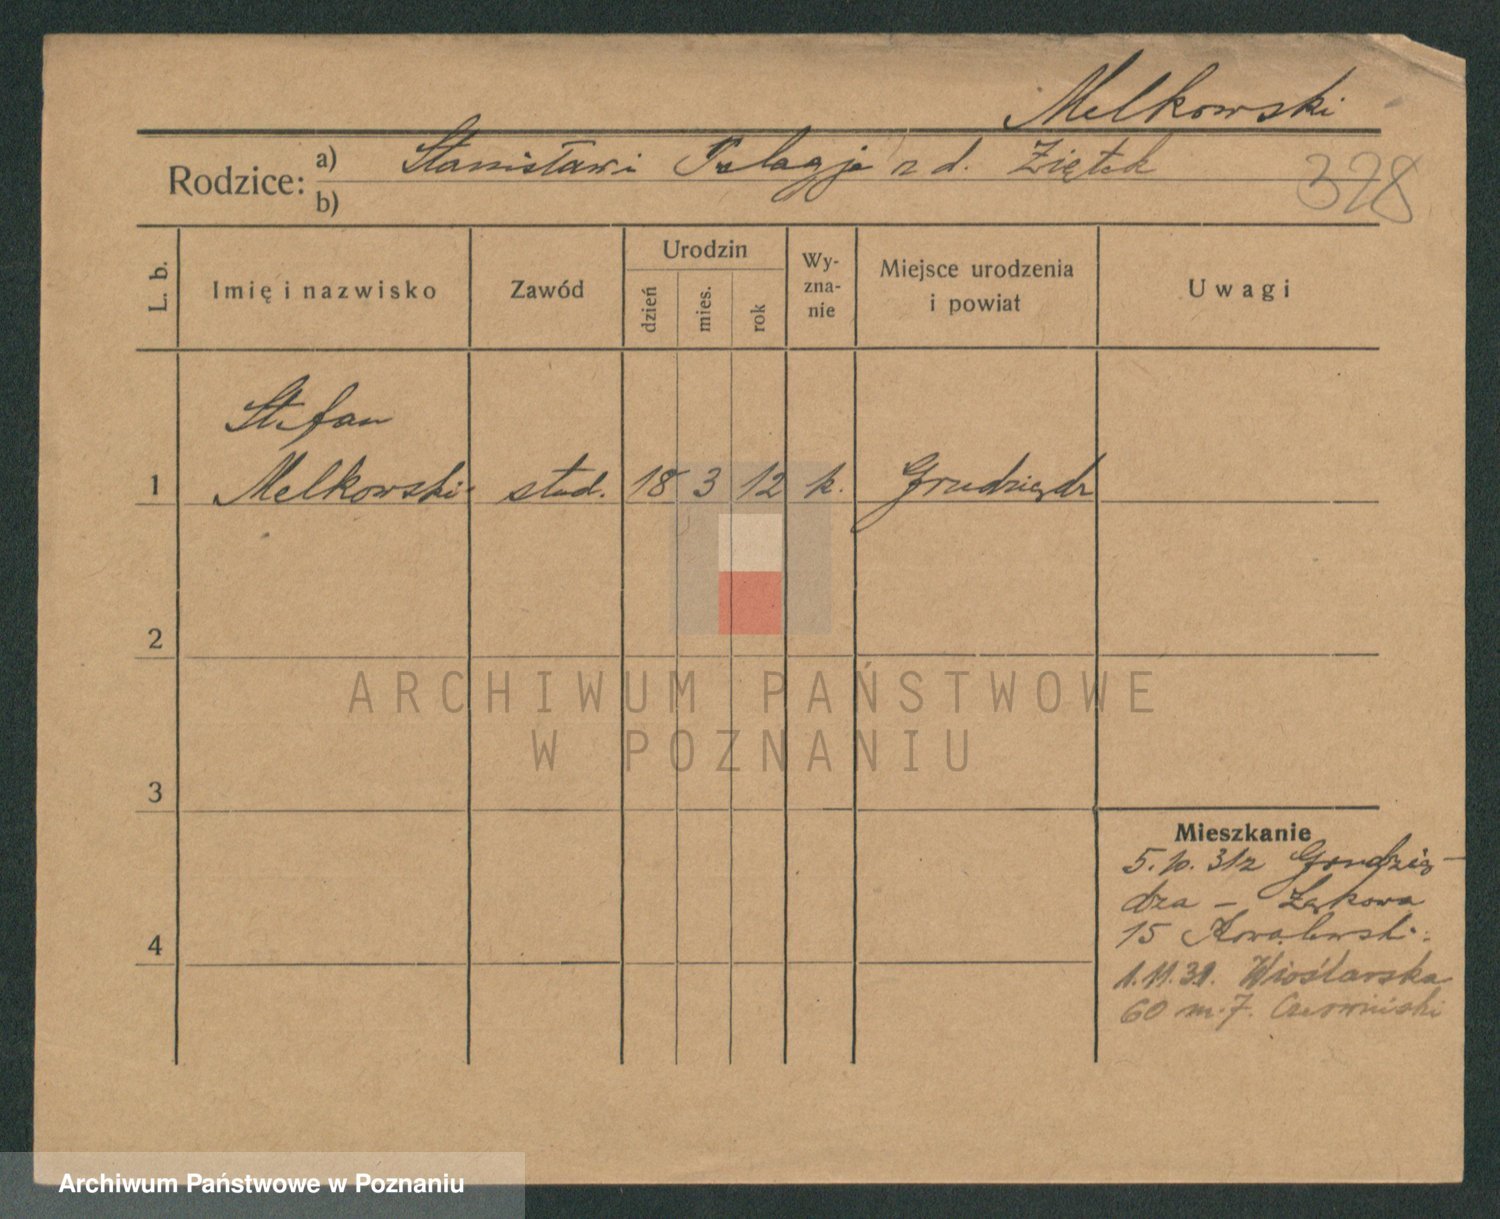 Melkowski
Rodzice: a) Stanisław i Pelagja z d. Ziętek
b)
378
L. b. Imię i nazwisko Zawód Urodzin dzień mies. rok Wy-zna-nie Miejsce urodzenia i powiat Uwagi
Stefan
1 Melkowski stud. 18 3 12 k. Grudziądz
2
ARCHIWUM PAŃSTWOWE
W POZNANIU
3
Mieszkanie
5.10.31 z Grudzią-
dza – Łąkowa
15 Kowalewski
4
1.11.31. Wioślarska
60 m. 7.
Archiwum Państwowe w Poznaniu